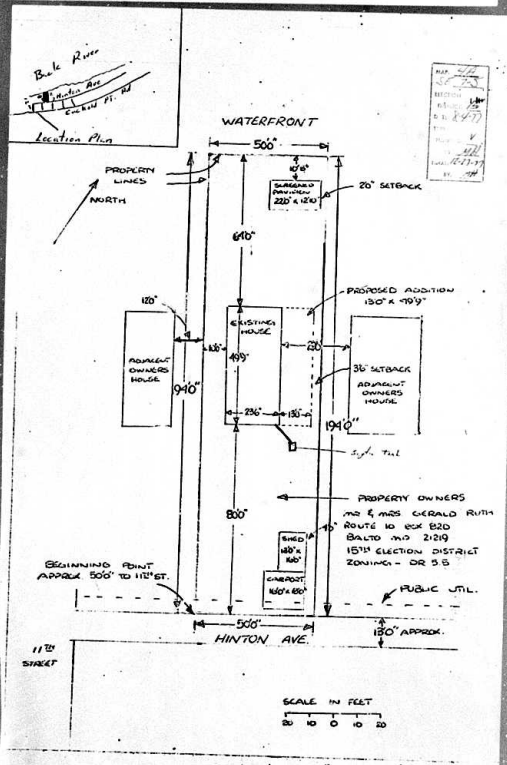 Back River
Hinton Ave
Cuckold Pt. Rd
Location Plan
MAP 4A
SE 7-J
WATERFRONT
50'0"
PROPERTY
LINES
NORTH
10'6"
SCREENED
PAVILION
22'0" x 12'10"
2'0" SETBACK
64'0"
PROPOSED ADDITION
13'0" x 49'9"
12'0"
EXISTING
HOUSE
10'6"
49'9"
23'0"
ADJACENT
OWNERS
HOUSE
3'6" SETBACK
ADJACENT
OWNERS
HOUSE
194'0"
194'0"
23'6"
13'0"
80'0"
PROPERTY OWNERS
MR & MRS GERALD RUTH
ROUTE 10 BOX 820
BALTO MD 21219
15TH ELECTION DISTRICT
ZONING - DR 5.5
SHED
CARPORT
BEGINNING POINT
APPROX. 50'0" TO 11TH ST.
PUBLIC UTIL.
50'0"
HINTON AVE.
13'0" APPROX.
11TH
STREET
SCALE IN FEET
20 10 0 10 20